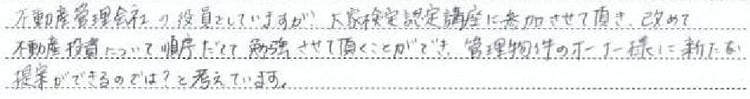 不動産管理会社の役員をしていますが、大家検定認定講座に参加させて頂き、改めて
不動産投資について順序だてて勉強させて頂くことができ、管理物件のオーナー様に新たな
提案ができるのでは？と考えています。